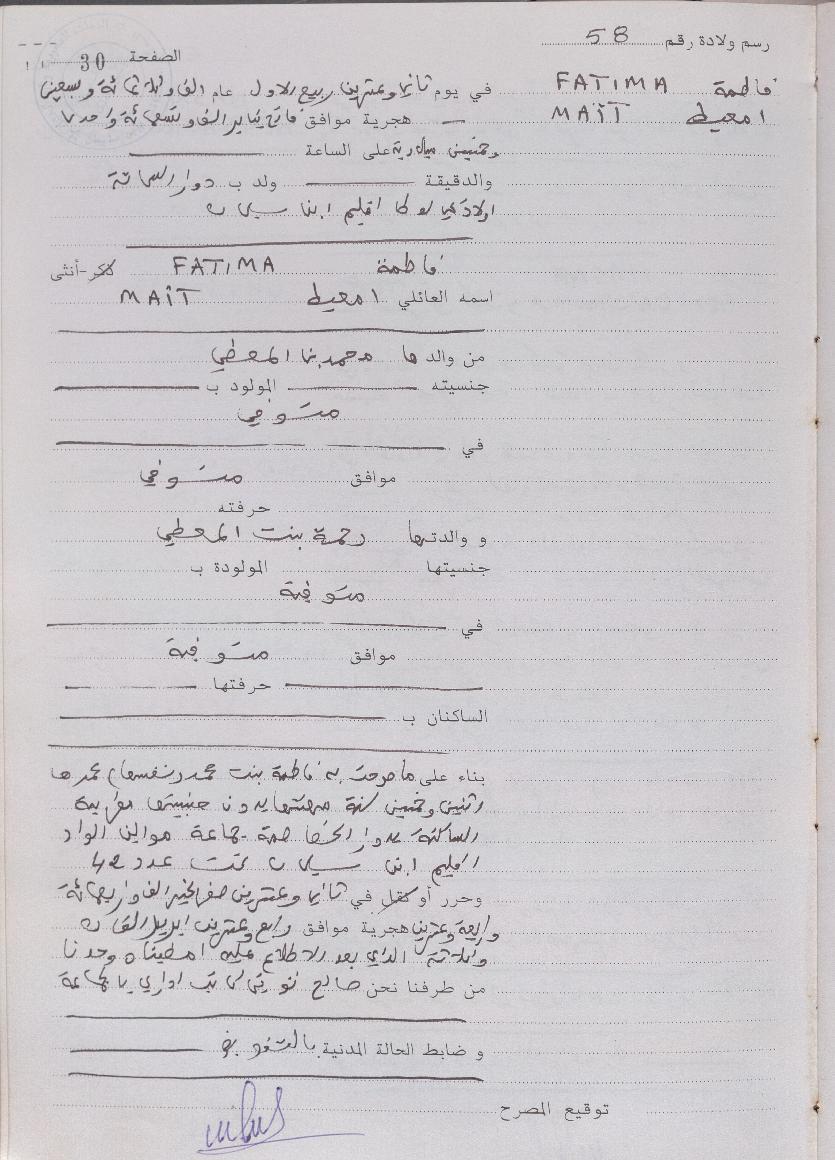 رسم ولادة رقم 58
الصفحة 30
فاطمة FATIMA
امعيط MAÏT
في يوم ثاني وعشرين ربيع الاول عام الف وثلاثمائة وسبعين
هجرية موافق فاتح يناير الف وتسعمائة واحد
وخمسين ميلادية على الساعة
والدقيقة ولد ب دوار
اولاد اقليم ابن سليمان
فاطمة FATIMA ذكر-أنثى
اسمه العائلي امعيط MAÏT
من والدها محمد بن المعطي
جنسيته المولود ب
متوفي
في
موافق متوفي
حرفته
و والدتها رحمة بنت المعطي
جنسيتها المولودة ب
متوفية
في
موافق متوفية
حرفتها
الساكنان ب
بناء على ما صرحت به فاطمة بنت محمد بنفسها عمرها
اثنين وخمسين سنة مهنتها بدون جنسيتها مغربية
الساكنة بدوار جماعة موالين الواد
اقليم ابن سليمان تحت عدد 42
وحرر أو نقل في ثاني وعشرين صفر الخير الف واربعمائة
واربعة وعشرين هجرية موافق رابع وعشرين ابريل الفان
وثلاثة الذي بعد الاطلاع عليه امضيناه وحدنا
من طرفنا نحن صالح كاتب اداري بالجماعة
و ضابط الحالة المدنية بالتفويض
توقيع المصرح